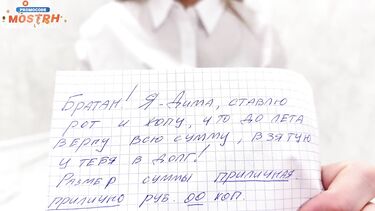 PROMOCODE
MOSTRH
БРАТАН! Я - ДИМА, СТАВЛЮ
РОТ И ЖОПУ, ЧТО ДО ЛЕТА
ВЕРНУ ВСЮ СУММУ, ВЗЯТУЮ
У ТЕБЯ В ДОЛГ!
РАЗМЕР СУММЫ ПРИЛИЧНАЯ
ПРИЛИЧНО РУБ. 00 КОП.